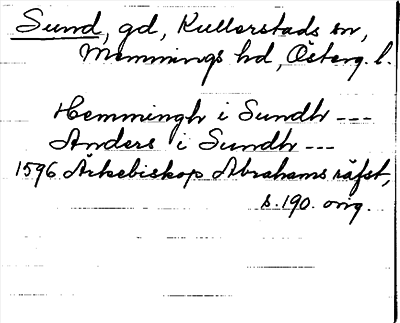 Sund, gd, Kullerstads sn,
Memmings hd, Österg. l.
Hemmingh i Sundh ---
Anders i Sundh ---
1596 Ärkebiskop Abrahams räfst,
s. 190. orig.